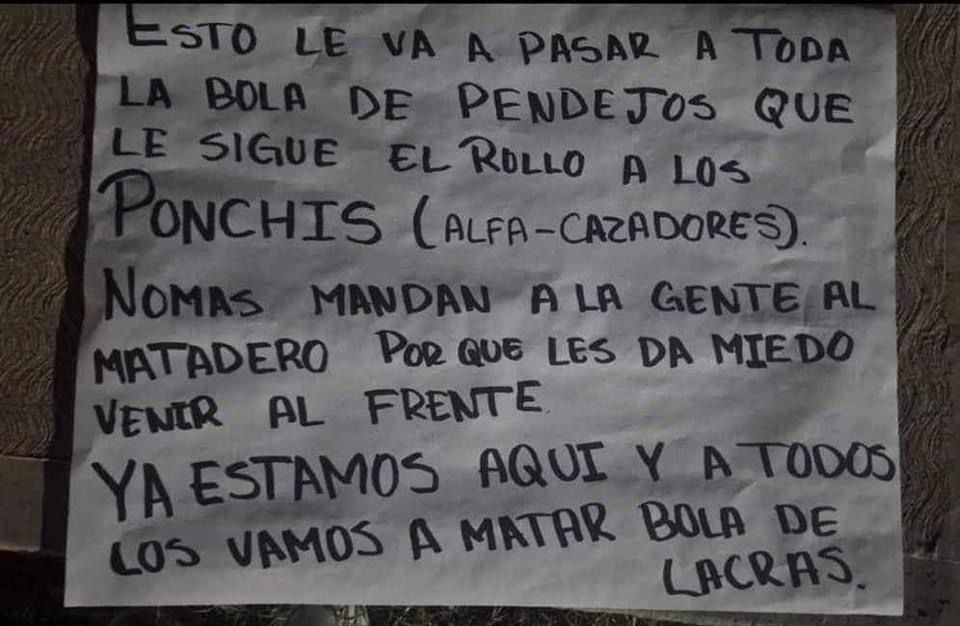 ESTO LE VA A PASAR A TODA
LA BOLA DE PENDEJOS QUE
LE SIGUE EL ROLLO A LOS
PONCHIS (ALFA-CAZADORES).
NOMAS MANDAN A LA GENTE AL
MATADERO POR QUE LES DA MIEDO
VENIR AL FRENTE.
YA ESTAMOS AQUI Y A TODOS
LOS VAMOS A MATAR BOLA DE
LACRAS.